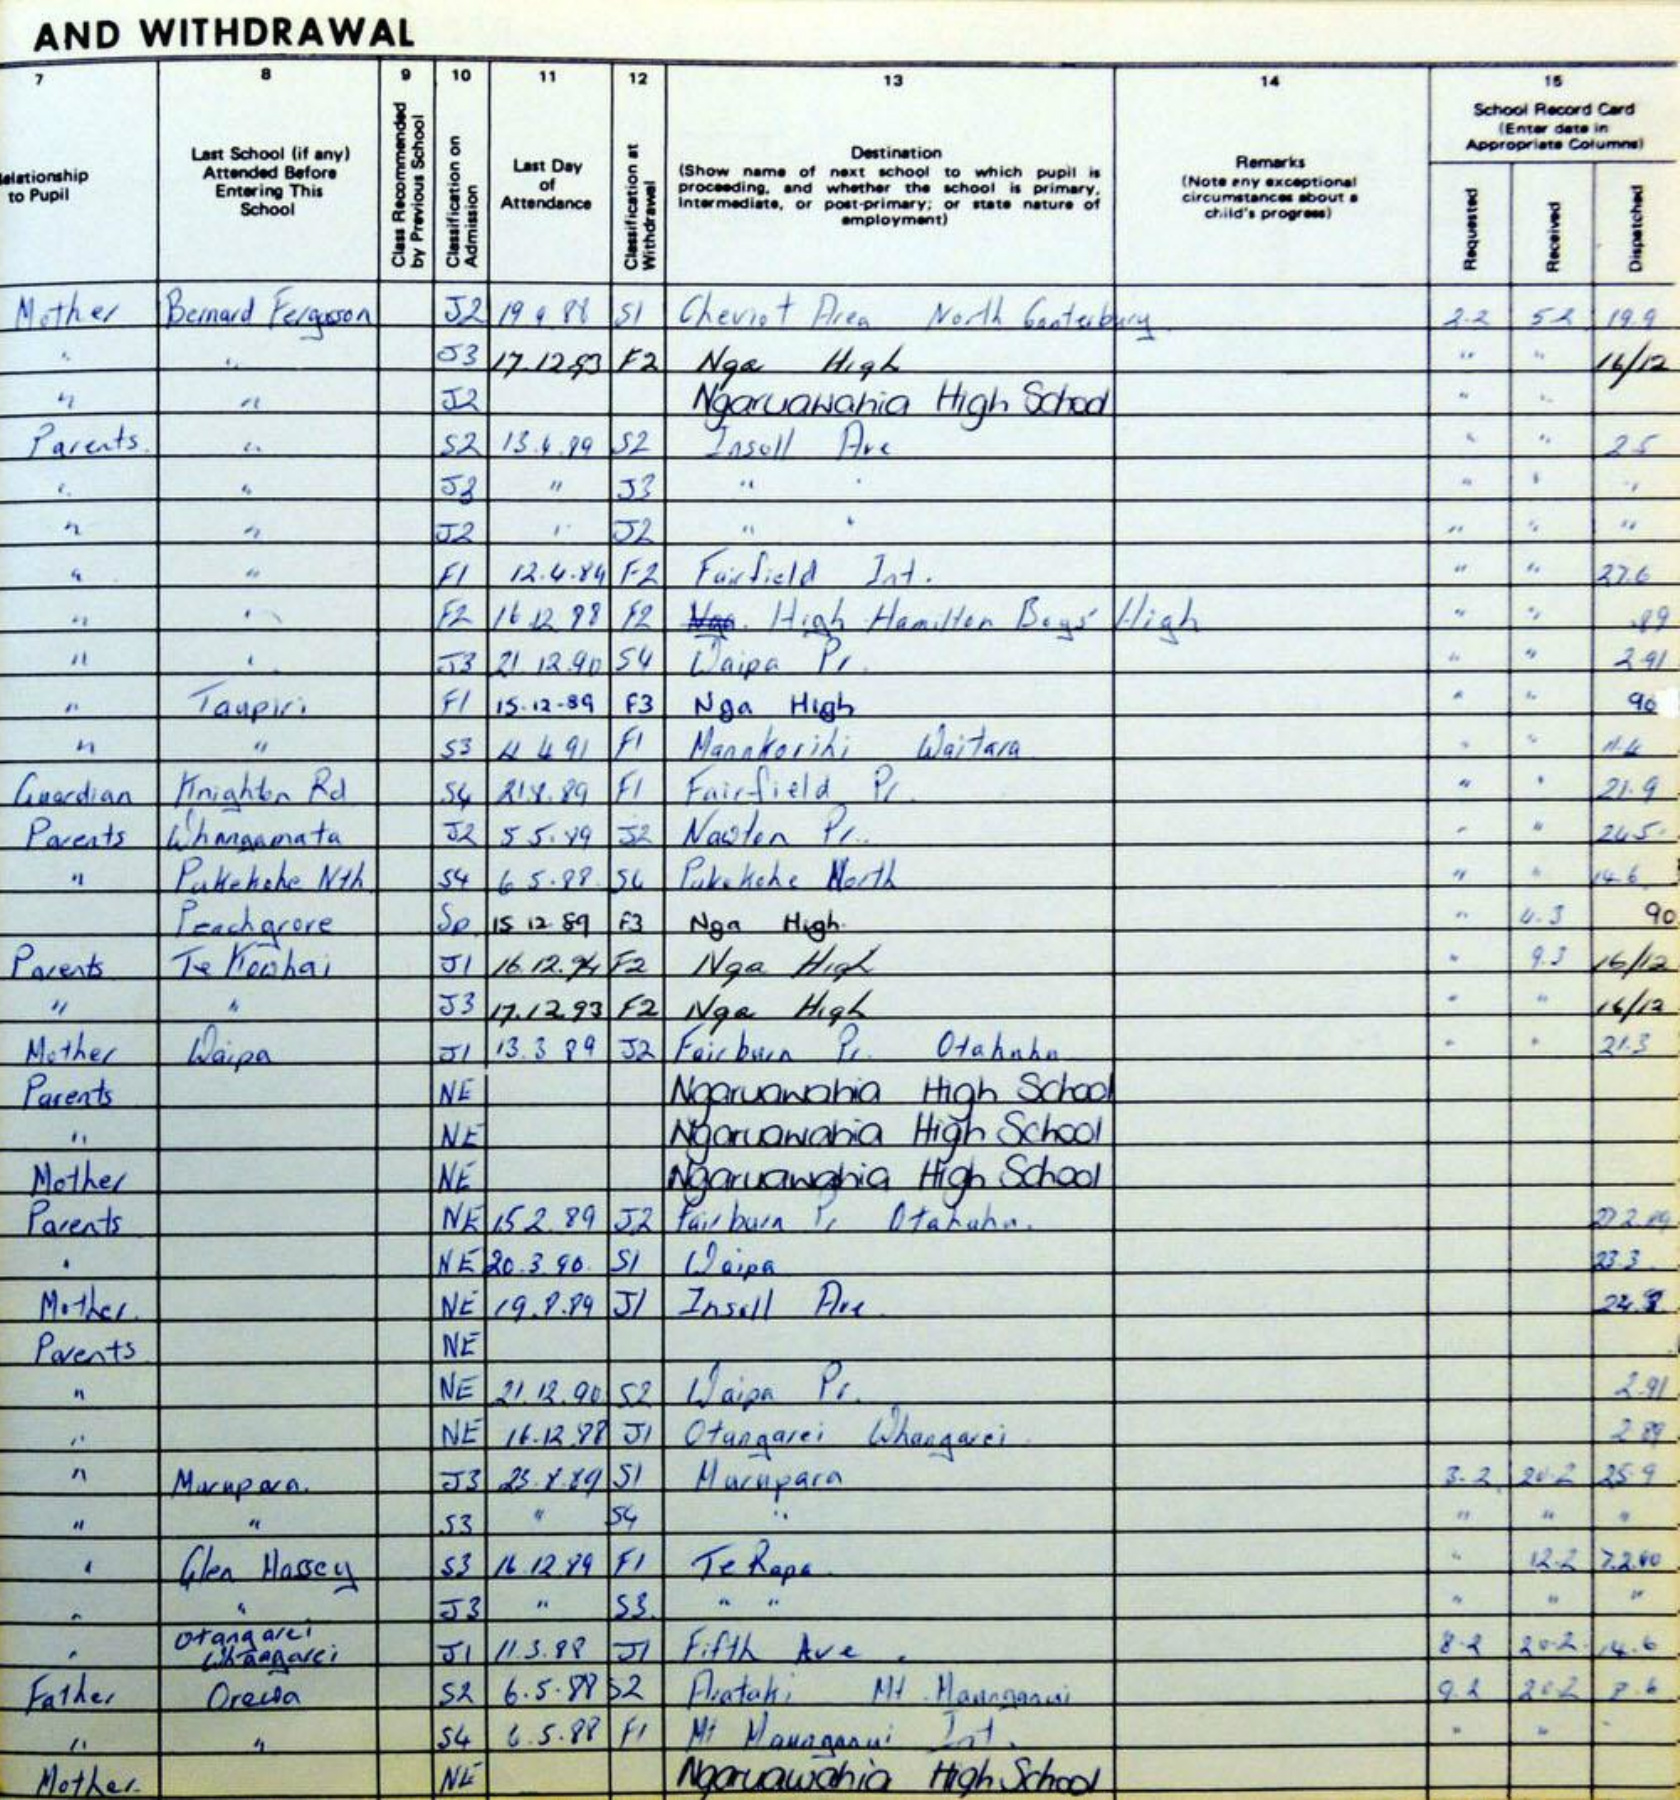 AND WITHDRAWAL
7 8 9 10 11 12 13 14 15
Relationship to Pupil
Last School (if any) Attended Before Entering This School
Class Recommended by Previous School
Classification on Admission
Last Day of Attendance
Classification at Withdrawal
Destination
(Show name of next school to which pupil is proceeding, and whether the school is primary, Intermediate, or post-primary; or state nature of employment)
Remarks
(Note any exceptional circumstances about a child's progress)
School Record Card
(Enter date in Appropriate Columns)
Requested Received Dispatched
Mother Bernard Fergusson J2 19 9 88 S1 Cheviot Area North Canterbury 2.2 5 2 19.9
" " J3 17.12.93 F2 Nga High " " 16/12
" " J2 Ngaruawahia High School " "
Parents. " S2 13.4.89 S2 Insoll Ave " " 2 5
" " J3 " J3 " " " " "
" " J2 " J2 " " " " "
" " F1 12.4.89 F2 Fairfield Int. " " 27.6
" " F2 16 12 88 F2 Nga. High Hamilton Boys' High " " 89
" " J3 21.12.90 S4 Waipa Pr. " " 2 91
" Taupiri F1 15-12-89 F3 Nga High " " 90
" " S3 4 91 F1 Waitara " "
Guardian Knighton Rd S4 21.8.89 F1 Fairfield Pr. " " 21.9
Parents Whangamata J2 5 5.89 J2 Nawton Pr. " " 24.5
" Pukekohe Nth S4 6 5.88 S4 Pukekohe North " " 14.6
Peachgrove Sp 15 12 89 F3 Nga High. " 4.3 90
Parents Te Kowhai J1 16.12.94 F2 Nga High " 9.3 16/12
" " J3 17.12.93 F2 Nga High " " 16/12
Mother Waipa J1 13.3 89 J2 Fairburn Pr. Otahuhu " " 21.3
Parents NE Ngaruawahia High School
" NE Ngaruawahia High School
Mother NE Ngaruawahia High School
Parents NE 15 2.89 J2 Fairburn Pr Otahuhu. 27 2 89
" NE 20.3.90. S1 Waipa 23.3
Mother. NE 19.8.89 J1 Insoll Ave 24.8
Parents NE
" NE 21.12.90 S2 Waipa Pr. 2.91
" NE 16.12.88 J1 Otangarei Whangarei 2 89
" Murupara. J3 25.8.89 S1 Murupara 3.2 20.2 25.9
" " S3 " S4 " " " "
" Glen Massey S3 16.12.89 F1 Te Rapa " 12.2 7.2.90
" " J3 " S3. " " " " "
" Otangarei Whangarei J1 11.3.88 J1 Fifth Ave. 8.2 20.2 14.6
Father Orewa S2 6.5.88 S2 Arataki Mt Maunganui 9.2 20.2 8.6
" " S4 6.5.88 F1 Mt Maunganui Int. " "
Mother. NE Ngaruawahia High School